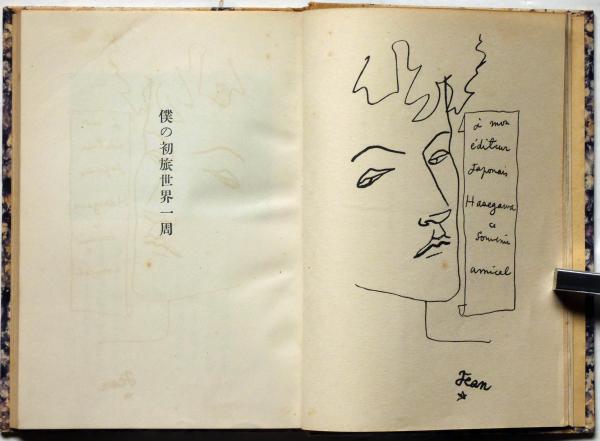 僕の初旅世界一周
à mon
éditeur
Japonais
Hasegawa
ce
souvenir
amical
Jean